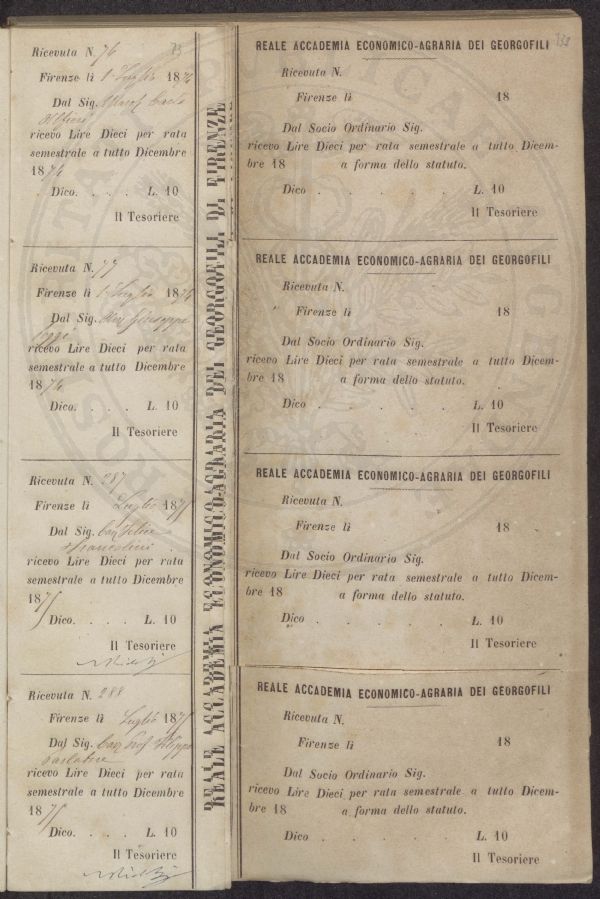 Ricevuta N. 76
73
Firenze lì 1 Luglio 1874
Dal Sig. March Carlo
ricevo Lire Dieci per rata
semestrale a tutto Dicembre
1874
Dico. . . . L. 10
Il Tesoriere
Ricevuta N. 77
Firenze lì 1 Luglio 1874
Dal Sig. Giuseppe
ricevo Lire Dieci per rata
semestrale a tutto Dicembre
1874
Dico. . . . L. 10
Il Tesoriere
Ricevuta N. 287
Firenze lì Luglio 1875
Dal Sig. Cav Felice
Francolini
ricevo Lire Dieci per rata
semestrale a tutto Dicembre
1875
Dico. . . . L. 10
Il Tesoriere
Ricevuta N. 288
Firenze lì Luglio 1875
Dal Sig. Cav Prof Filippo
Parlatore
ricevo Lire Dieci per rata
semestrale a tutto Dicembre
1875
Dico. . . . L. 10
Il Tesoriere
REALE ACCADEMIA ECONOMICO-AGRARIA DEI GEORGOFILI DI FIRENZE
REALE ACCADEMIA ECONOMICO-AGRARIA DEI GEORGOFILI
Ricevuta N.
Firenze lì 18
Dal Socio Ordinario Sig.
ricevo Lire Dieci per rata semestrale a tutto Dicem-
bre 18 a forma dello statuto.
Dico . . . . L. 10
Il Tesoriere
REALE ACCADEMIA ECONOMICO-AGRARIA DEI GEORGOFILI
Ricevuta N.
Firenze lì 18
Dal Socio Ordinario Sig.
ricevo Lire Dieci per rata semestrale a tutto Dicem-
bre 18 a forma dello statuto.
Dico . . . . L. 10
Il Tesoriere
REALE ACCADEMIA ECONOMICO-AGRARIA DEI GEORGOFILI
Ricevuta N.
Firenze lì 18
Dal Socio Ordinario Sig.
ricevo Lire Dieci per rata semestrale a tutto Dicem-
bre 18 a forma dello statuto.
Dico . . . . L. 10
Il Tesoriere
REALE ACCADEMIA ECONOMICO-AGRARIA DEI GEORGOFILI
Ricevuta N.
Firenze lì 18
Dal Socio Ordinario Sig.
ricevo Lire Dieci per rata semestrale a tutto Dicem-
bre 18 a forma dello statuto.
Dico . . . . L. 10
Il Tesoriere